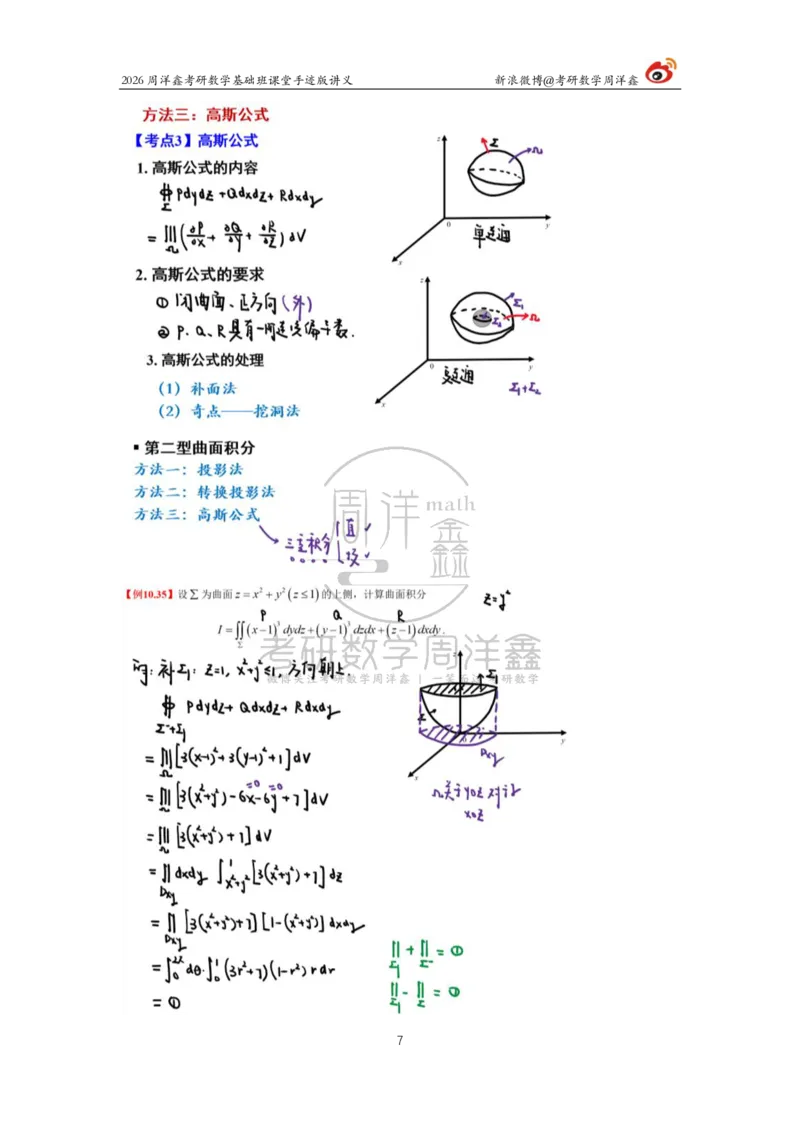 2026 周洋鑫考研数学基础班课堂手迹版讲义 新浪微博@考研数学周洋鑫
方法三：高斯公式
【考点3】高斯公式
1. 高斯公式的内容
∯_Σ Pdydz + Qdxdz + Rdxdy
= ∭_Ω (∂P/∂x + ∂Q/∂y + ∂R/∂z) dV
z Σ Ω
0 y
x
单连通
2. 高斯公式的要求
① 闭曲面、正方向（外）
② P、Q、R具有一阶连续偏导数.
z Σ₁ Σ₂ Ω
0 y
x
复连通
Σ₁+Σ₂
3. 高斯公式的处理
（1）补面法
（2）奇点——挖洞法
▪ 第二型曲面积分
方法一：投影法
方法二：转换投影法
方法三：高斯公式
三重积分
周洋鑫 math
【例10.35】设∑为曲面 z = x² + y² (z ≤ 1) 的上侧，计算曲面积分
z=y²
P Q R
I = ∬_Σ (x−1)³ dydz + (y−1)³ dzdx + (z−1) dxdy .
考研数学周洋鑫
解：补Σ₁：z=1, x²+y²≤1, 方向朝上.
∯_{Σ⁻+Σ₁} Pdydz + Qdxdz + Rdxdy
= ∭_Ω [3(x-1)²+3(y-1)²+1] dV
= ∭_Ω [3(x²+y²)-6x-6y+7] dV
=0 =0
= ∭_Ω [3(x²+y²)+7] dV
= ∬_{Dxy} dxdy ∫_{x²+y²}^1 [3(x²+y²)+7] dz
= ∬_{Dxy} [3(x²+y²)+7][1-(x²+y²)] dxdy
= ∫_0^{2π} dθ·∫_0^1 (3r²+7)(1-r²) r dr
= ①
z Σ₁
Σ
0 y
Dxy
x
Ω关于yoz对称
xoz
∬_{Σ₁} + ∬_{Σ⁻} = ①
∬_{Σ₁} - ∬_Σ = ①
7